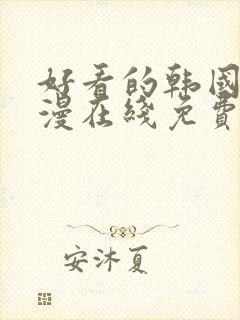 好看的韩国
漫在线免费
安沐夏